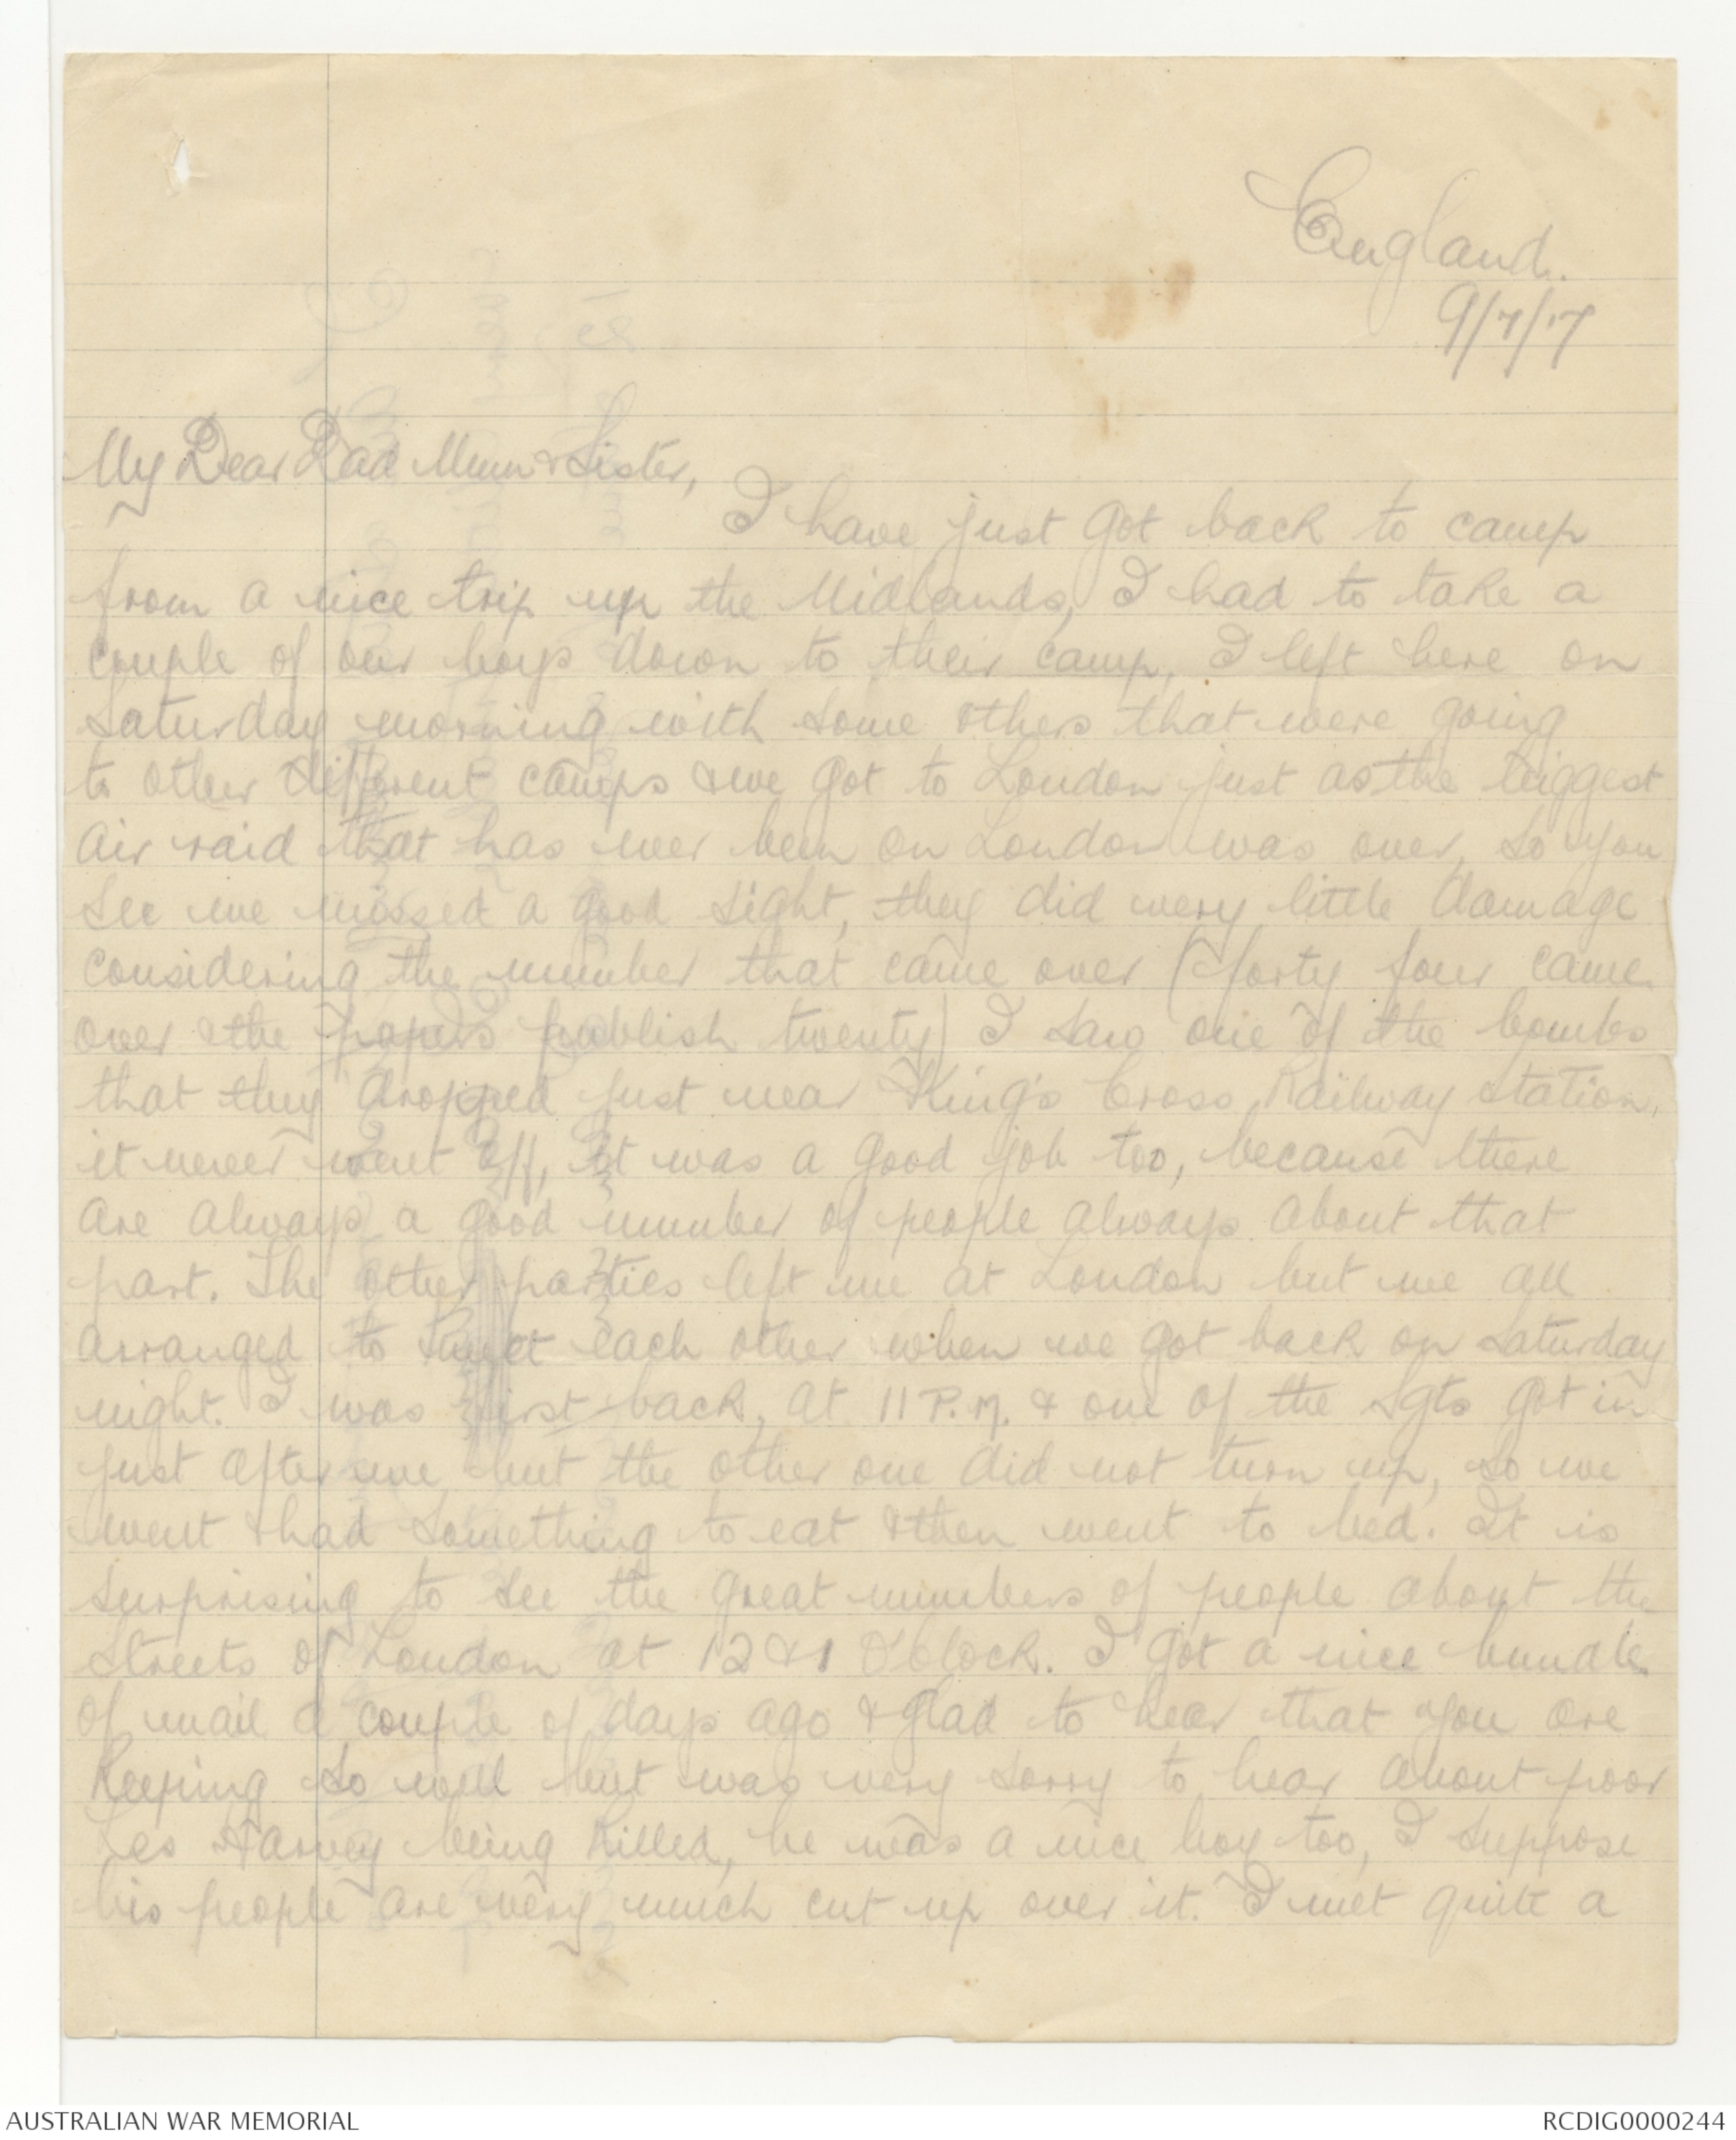 England.
9/7/17
My Dear Dad Mum & Sister,
I have just got back to camp
from a nice trip up the Midlands, I had to take a
couple of our boys down to their camp, I left here on
Saturday morning with some others that were going
to other different camps & we got to London just as the biggest
air raid that has ever been on London was over, so you
see we missed a good sight, they did very little damage
considering the number that came over (forty four came
over & the papers publish twenty) I saw one of the bombs
that they dropped just near King's Cross Railway Station,
it never went off, it was a good job too, because there
are always a good number of people always about that
part. The other parties left me at London but we all
arranged to meet each other when we got back on Saturday
night. I was first back, at 11 P.M. & one of the Sgts got in
just after me but the other one did not turn up, so we
went & had something to eat & then went to bed. It is
surprising to see the great numbers of people about the
streets of London at 12 & 1 O'Clock. I got a nice bundle
of mail a couple of days ago & glad to hear that you are
keeping so well but was very sorry to hear about poor
Les Harvey being killed, he was a nice boy too, I suppose
his people are very much cut up over it. I met quite a
AUSTRALIAN WAR MEMORIAL
RCDIG0000244